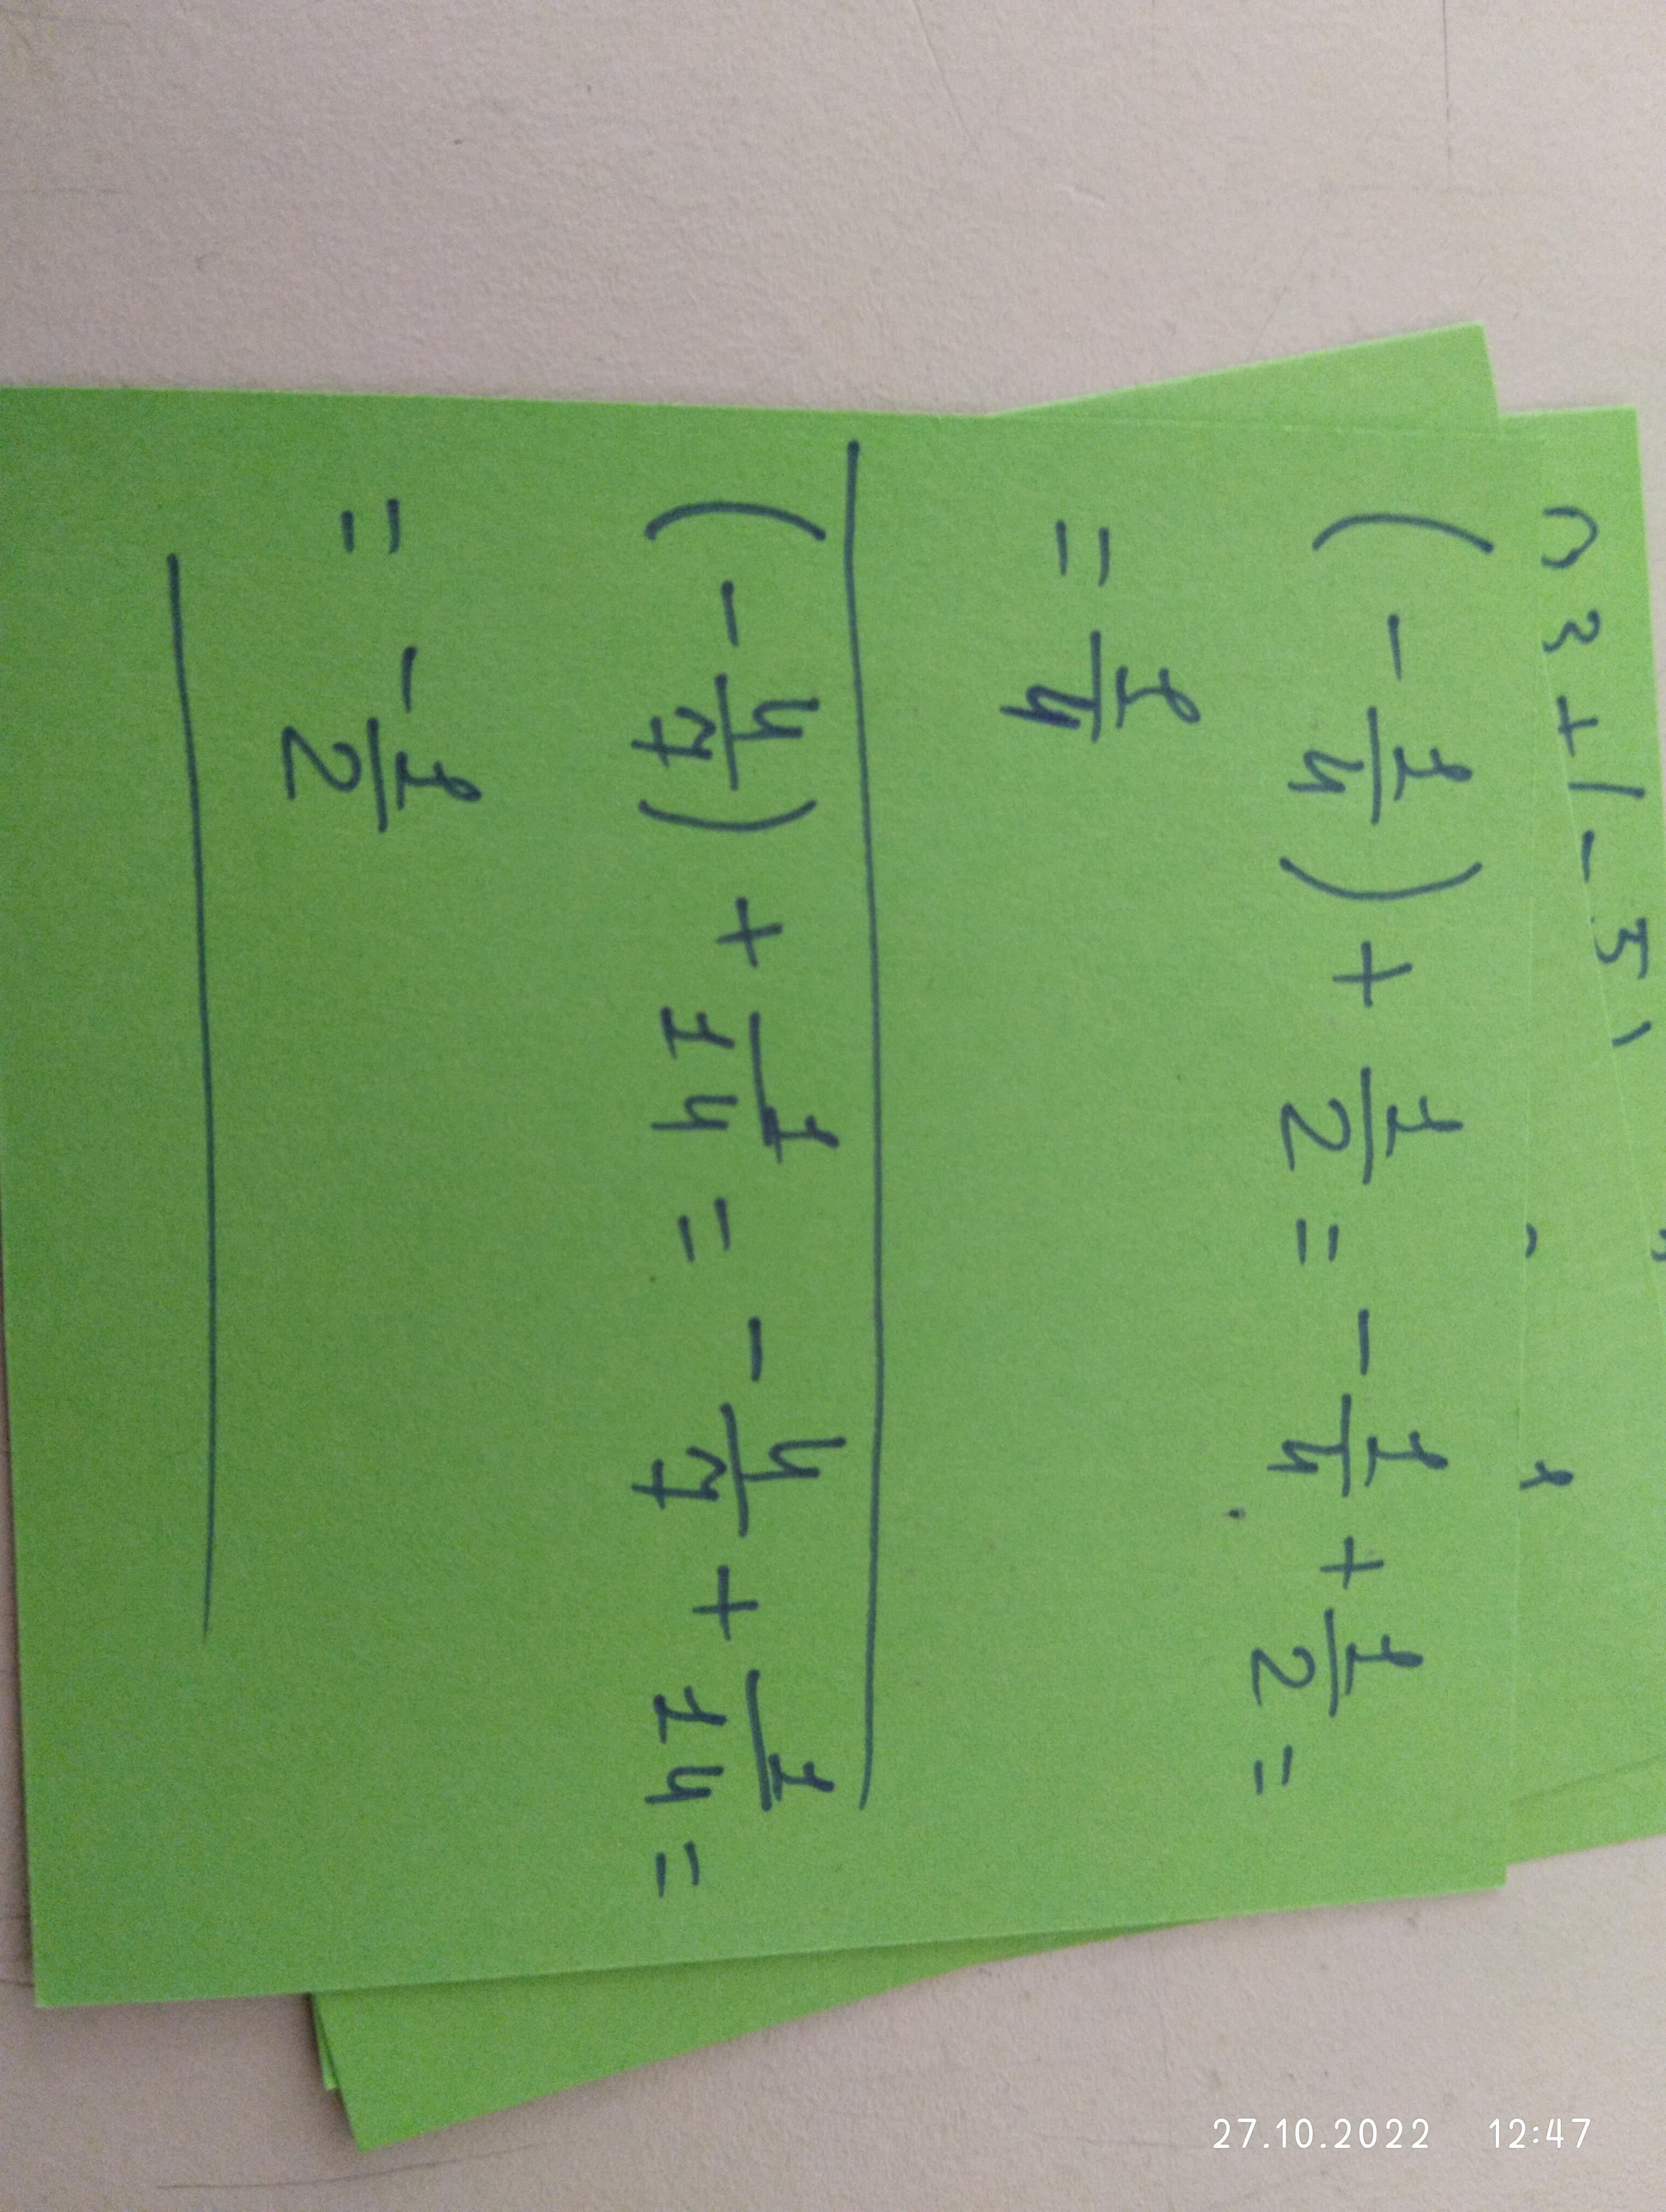 (-1/4) + 1/2 = -1/4 + 1/2 =
= 1/4
(-4/7) + 1/14 = -4/7 + 1/14 =
= -1/2
27.10.2022 12:47